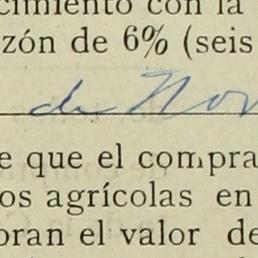 cimiento con la
zón de 6% (seis
de Nov
e que el compra
os agrícolas en
oran el valor de